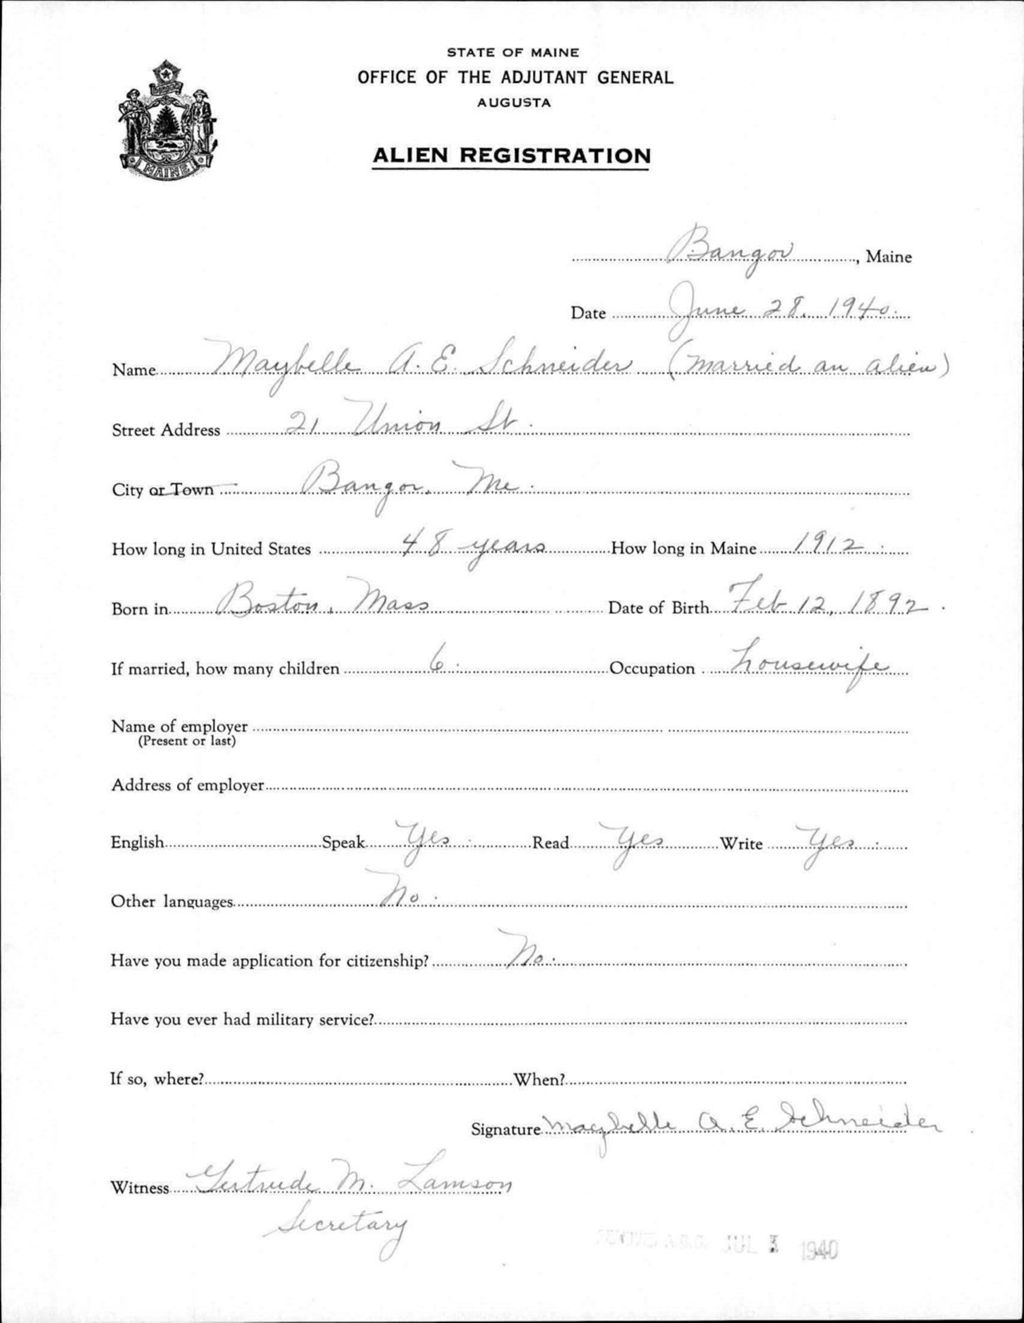 STATE OF MAINE
OFFICE OF THE ADJUTANT GENERAL
AUGUSTA
ALIEN REGISTRATION
MAINE
Bangor, Maine
Date June 28, 1940.
Name Maybelle A. E. Schneider (Married an alien)
Street Address 21 Union St.
City or Town Bangor, Me.
How long in United States 48 years How long in Maine 1912.
Born in Boston, Mass Date of Birth Feb 12, 1892.
If married, how many children 6. Occupation housewife
Name of employer
(Present or last)
Address of employer
English Speak Yes. Read Yes Write Yes.
Other languages No.
Have you made application for citizenship? No.
Have you ever had military service?
If so, where? When?
Signature Maybelle A. E. Schneider
Witness Gertrude M. Lamson
Secretary
A.G.O. JUL 1940